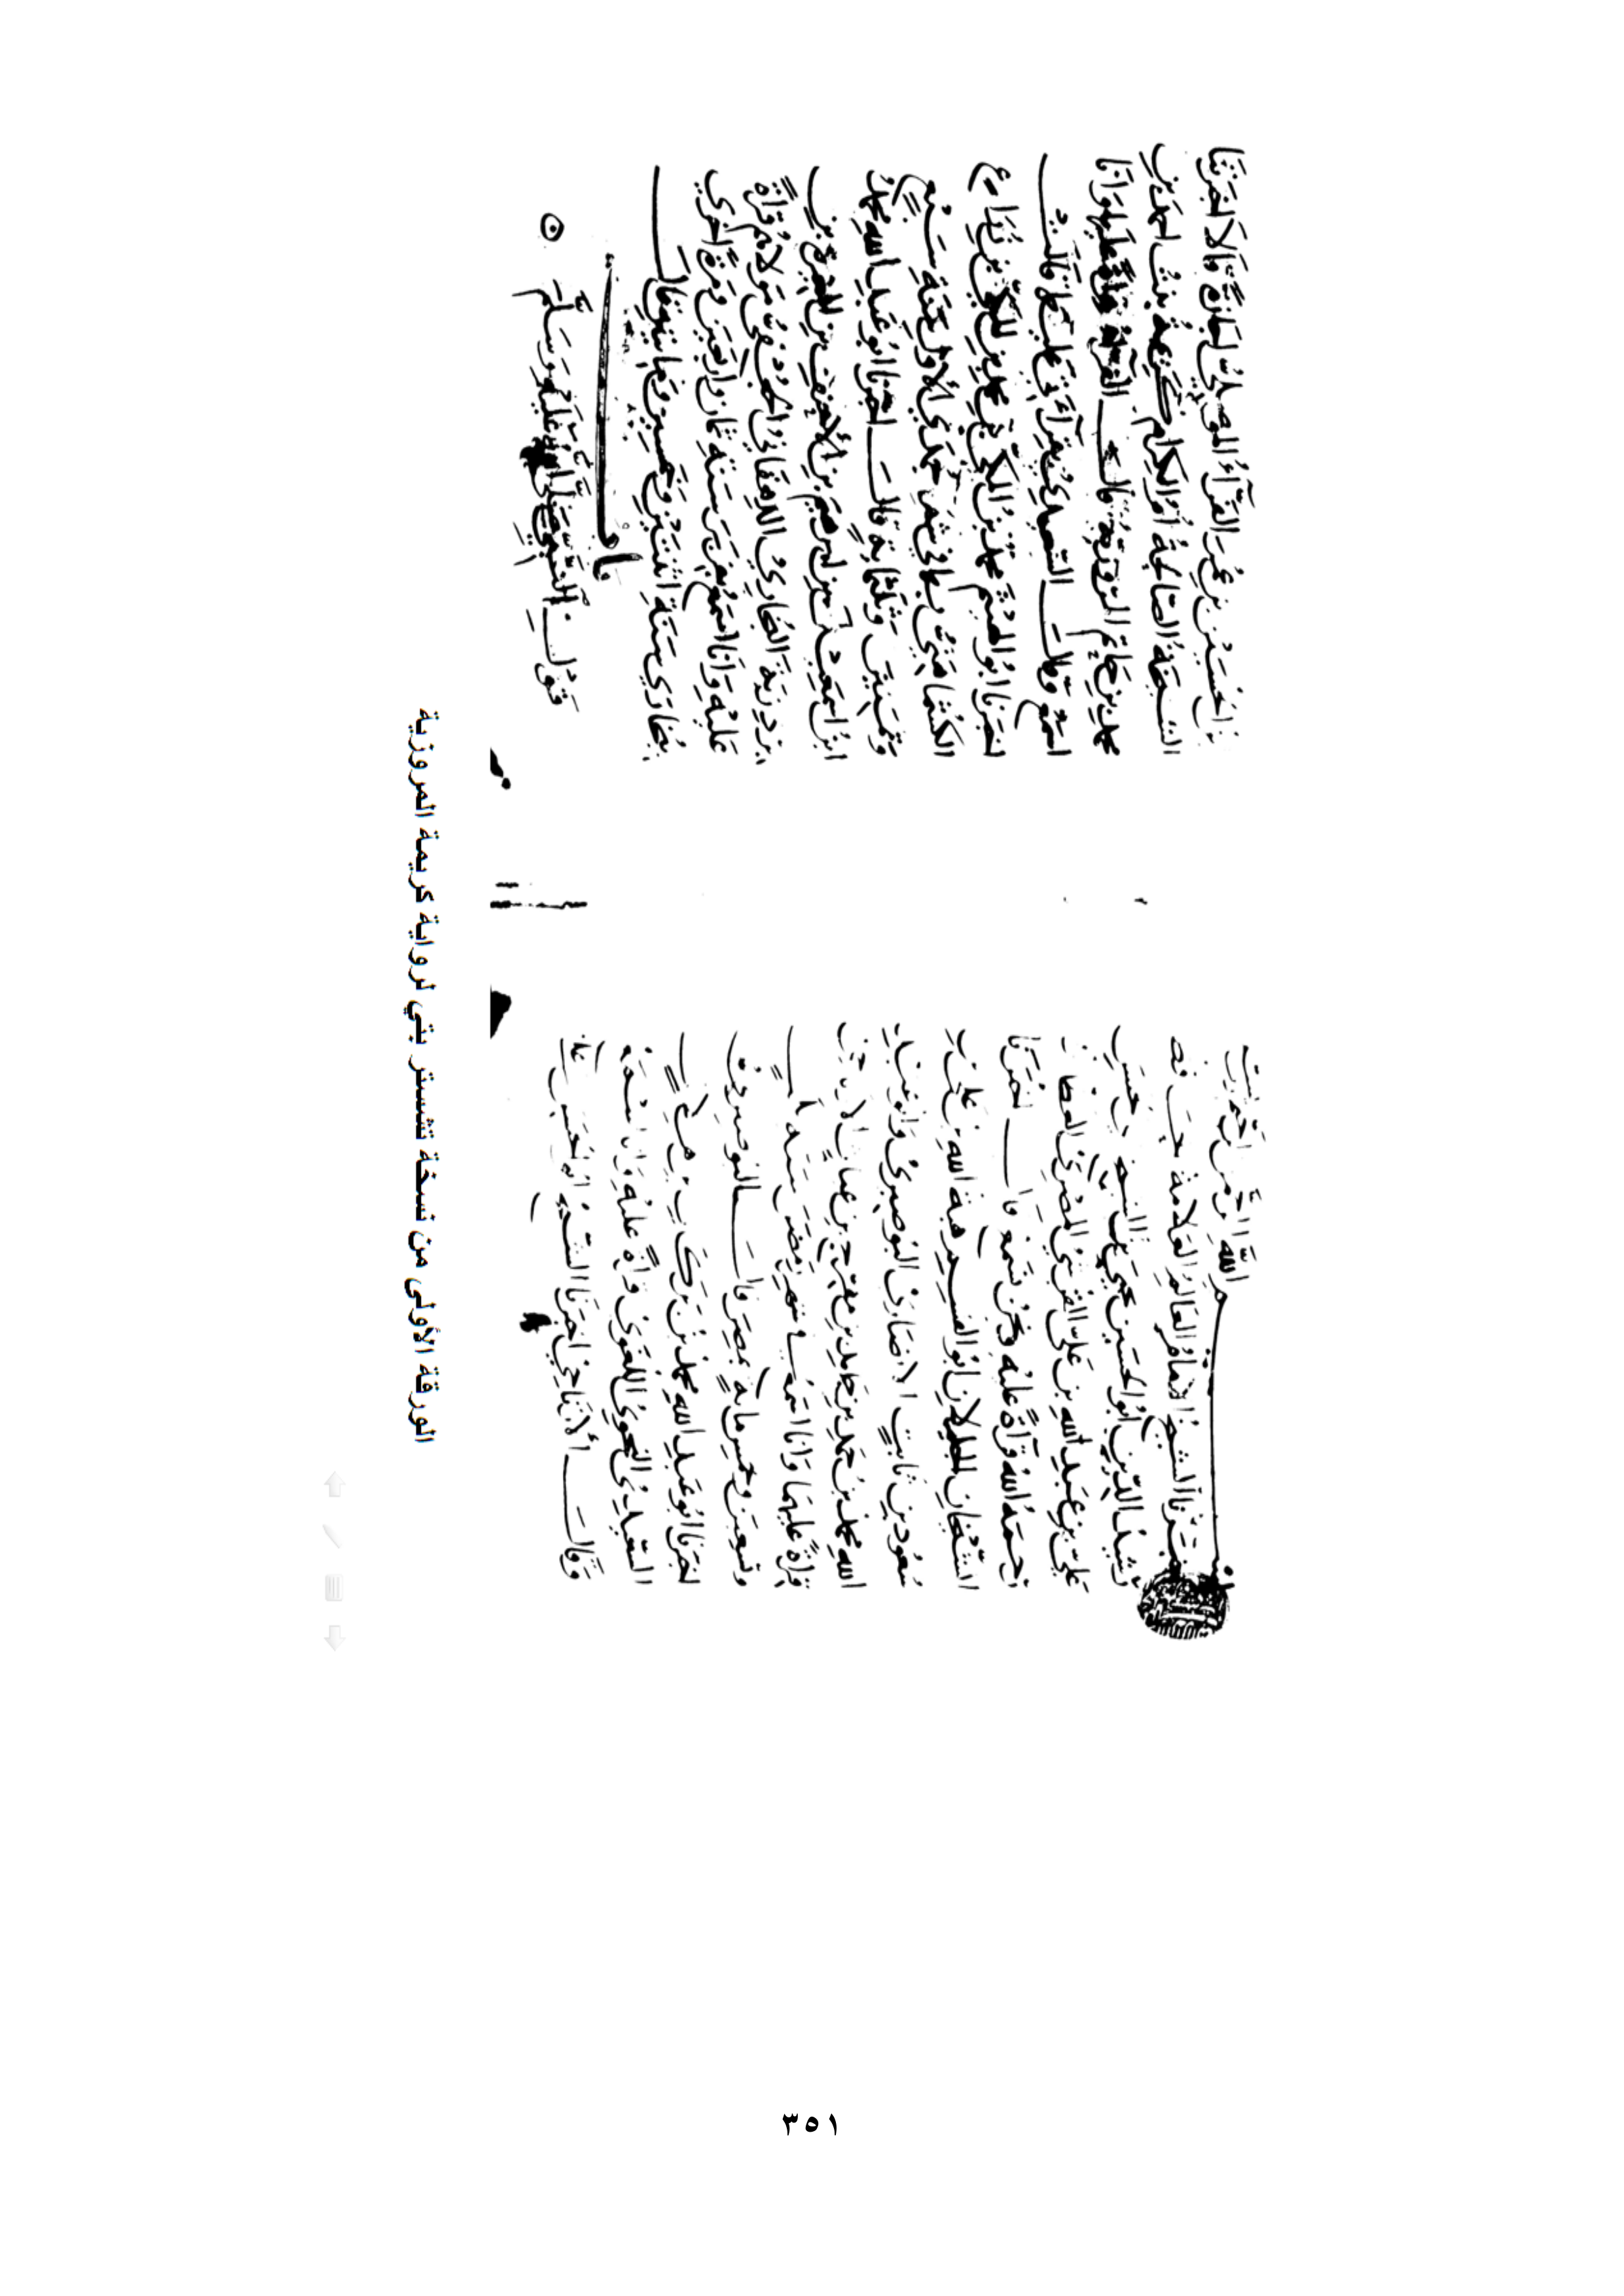 الله الرحمن الرحيم
الشيخ الإمام العالم العلامة
رشيد الدين أبو الحسين يحيى
علي بن عبد الله بن علي القرشي المصري العطار
رحمه الله قراءة عليه ونحن نسمع قال أخبرنا
الشيخان الجليلان أبو القسم هبة الله بن علي بن
سعود بن ثابت الأنصاري البوصيري وأبو عبد
الله محمد بن حمد بن حامد بن مفرج بن غياث الأرتاحي
قراءة عليهما وأنا أسمع في
وتسعين وخمس مائة بمصر قال البوصيري
أخبرنا أبو عبد الله محمد بن بركات بن هلال
السعيدي النحوي اللغوي قراءة عليه وأنا أسمع
وقال الأرتاحي أخبرنا الشيخ أبو الحسن علي
بن الحسين بن عمر الفراء الموصلي إجازة قالا أخبرتنا
الشيخة الصالحة أم الكرام كريمة بنت أحمد بن
محمد بن حاتم المروزية قال الفراء قراءة عليها وأنا
أسمع وقال السعيدي بقراءتي عليها قالت
أخبرنا أبو الهيثم محمد بن المكي بن محمد بن المكي بن زراع
الكشماهني بها في شهر جمادى الأول سنة
وثمنين وثلثماية قال أخبرنا أبو عبد الله محمد
ابن إسمعيل بن إبرهيم بن الأحنف بن المغيرة
الدهقان الجعفي مولاهم قراءة
عليه وأنا أسمع سنة ثمان وأربعين ومرة أخرى
ببخارى سنة اثنتين وخمسين ومايتين قال
باب
قول النبي صلى الله عليه وسلم
الورقة الأولى من نسخة تشستر بتي لرواية كريمة المروزية
٣٥١